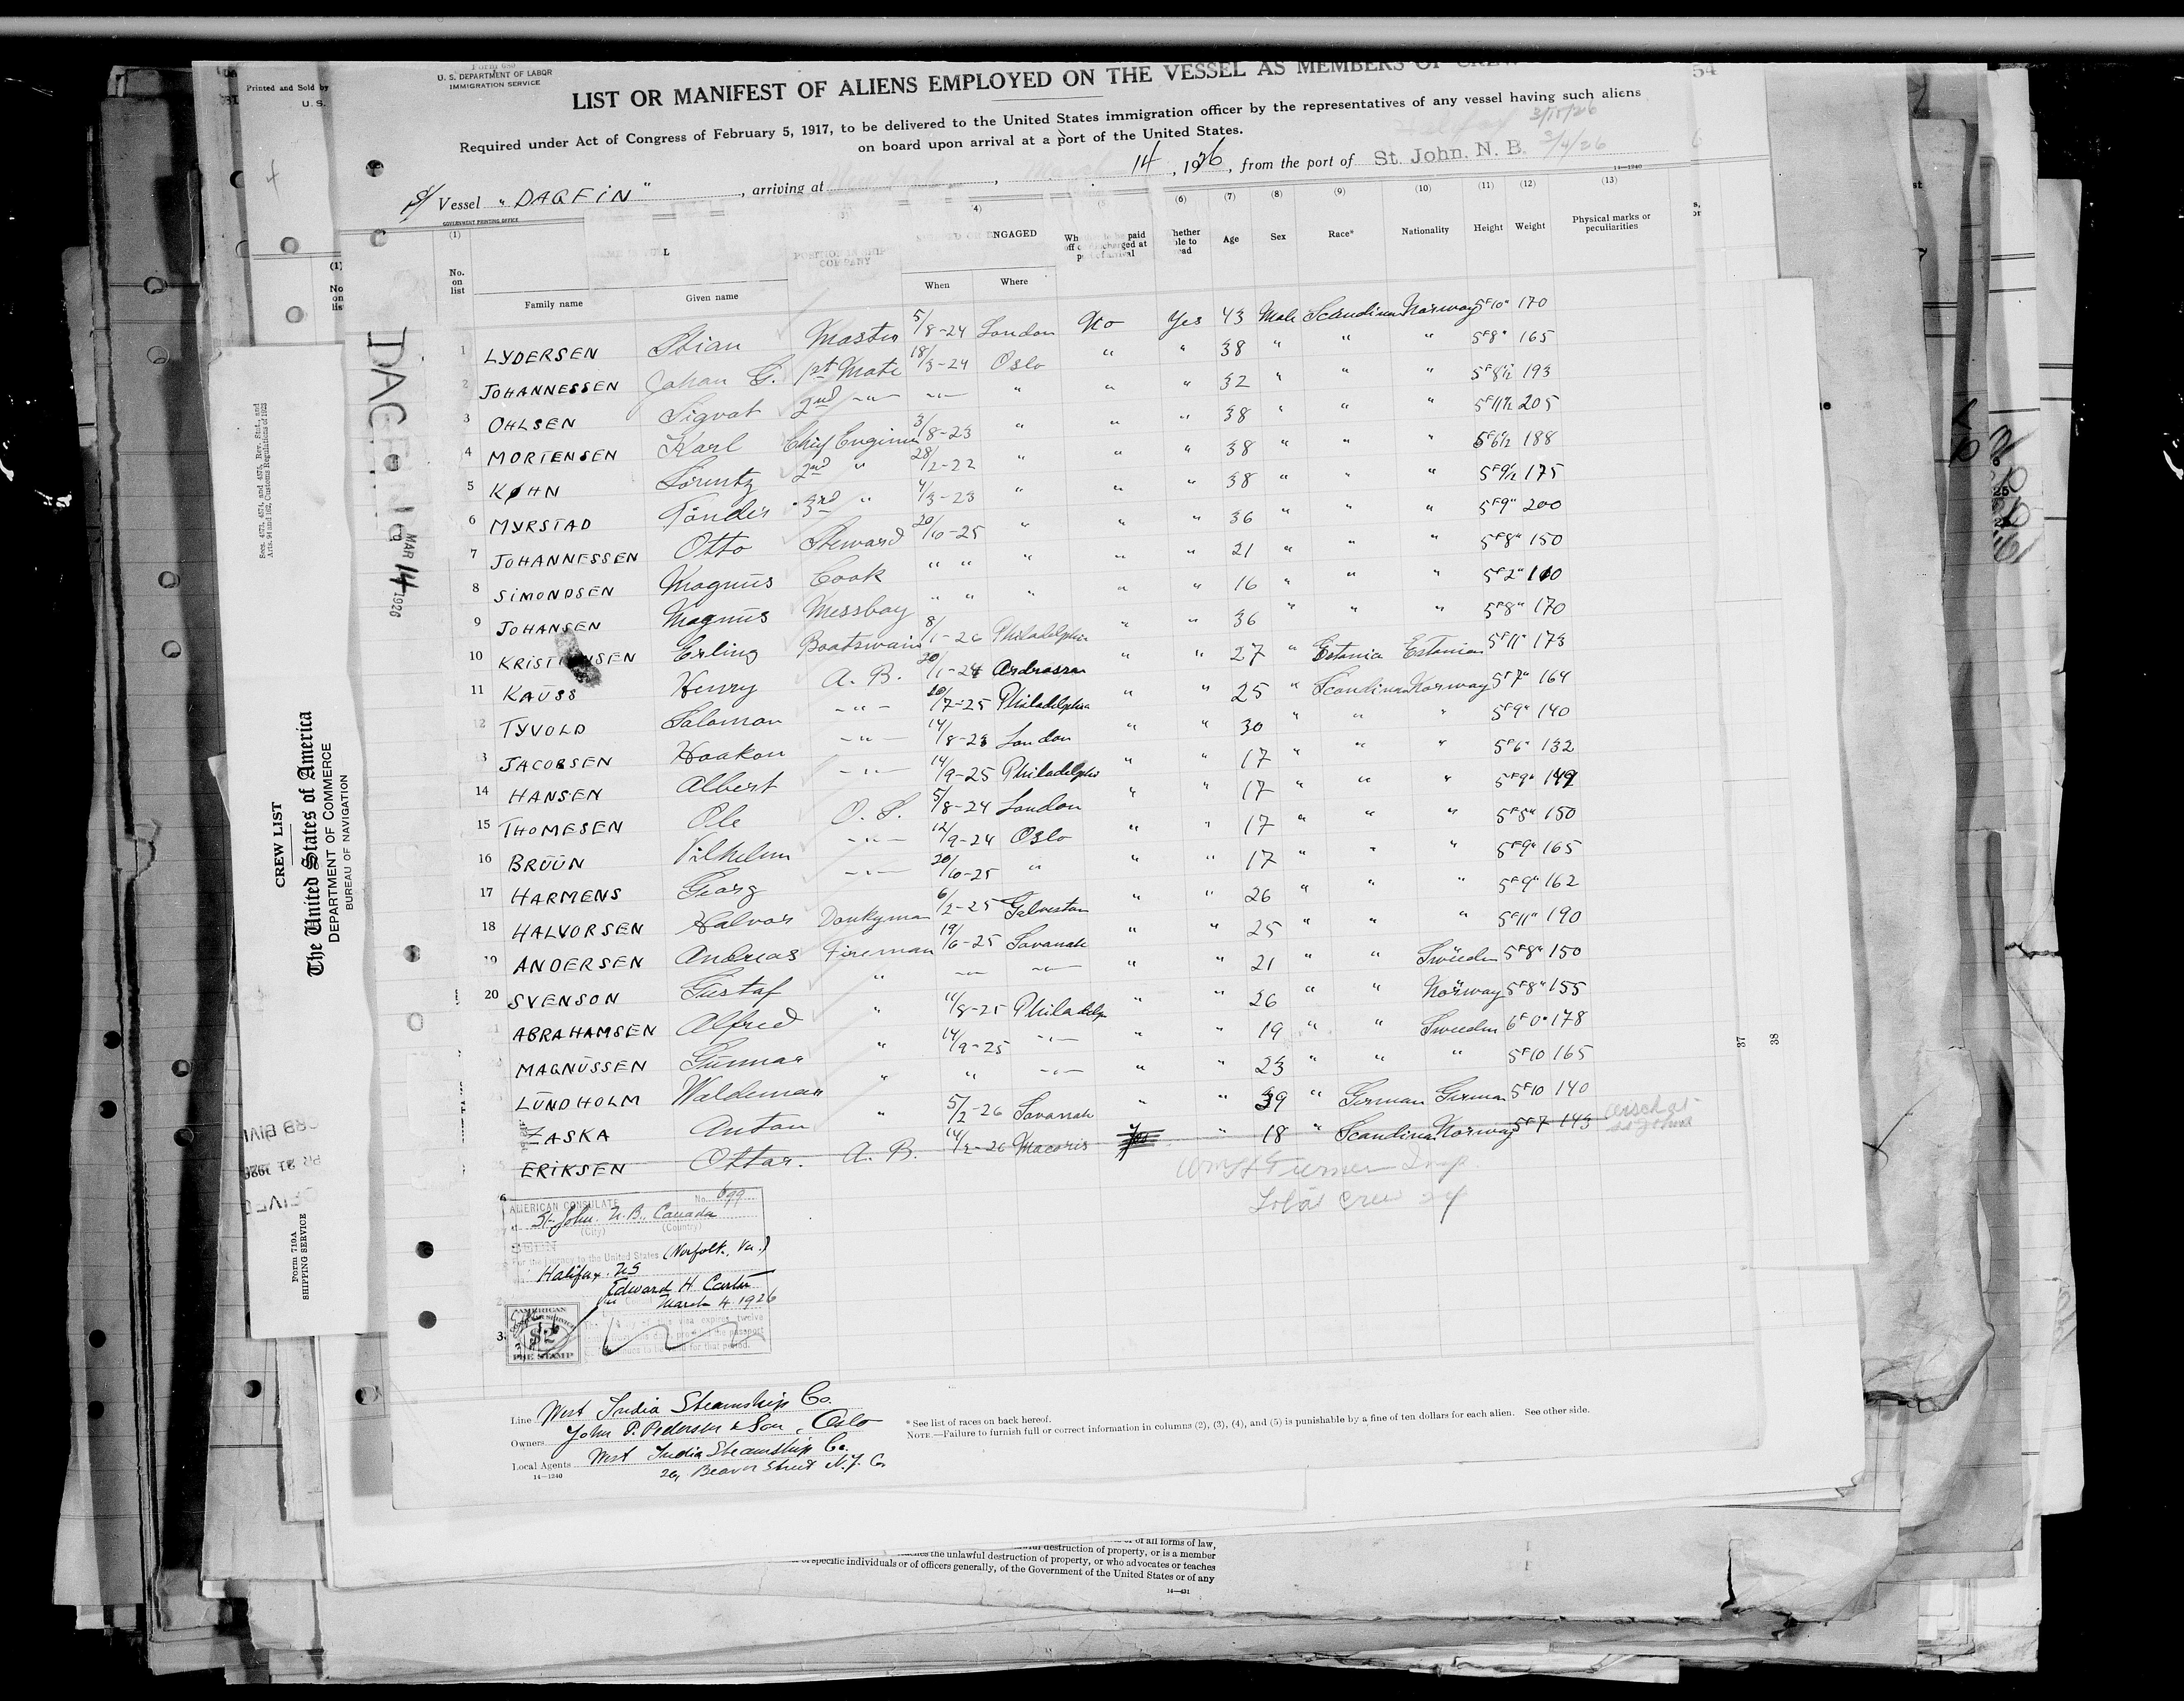 Printed and Sold by
U. S.
Form 680
U. S. DEPARTMENT OF LABOR
IMMIGRATION SERVICE
54
LIST OR MANIFEST OF ALIENS EMPLOYED ON THE VESSEL AS MEMBERS OF CREW
Required under Act of Congress of February 5, 1917, to be delivered to the United States immigration officer by the representatives of any vessel having such aliens
on board upon arrival at a port of the United States.
Halifax 3/15/26
S/ Vessel "DAGFIN", arriving at New York, March 14, 1926, from the port of St. John. N. B. 3/4/26
GOVERNMENT PRINTING OFFICE
14—1240
(1) (4) (6) (7) (8) (9) (10) (11) (12) (13)
No. on list
Family name Given name
POSITION IN SHIP'S COMPANY
ENGAGED
When Where
Whether to be paid off or discharged at port of arrival
Whether able to read
Age Sex Race* Nationality Height Weight Physical marks or peculiarities
1 LYDERSEN Stian Master 5/8-24 London No Yes 43 Male Scandinav Norway 5F10" 170
2 JOHANNESSEN Johan G. 1st Mate 18/3-24 Oslo " " 38 " " " 5F8" 165
3 OHLSEN Sigvat 2nd -"- -"- " " " 32 " " " 5F8½ 193
4 MORTENSEN Karl Chief Engineer 3/8-23 " " " 38 " " " 5F11½ 205
5 KØHN Lorentz 2nd " 28/2-22 " " " 38 " " " 5F6½ 188
6 MYRSTAD Tönder 3rd " 4/3-23 " " " 38 " " " 5F9½ 175
7 JOHANNESSEN Otto Steward 20/10-25 " " " 36 " " " 5F9" 200
8 SIMONDSEN Magnus Cook " " " " " 21 " " " 5F8" 150
9 JOHANSEN Magnus Messboy " " " " " 16 " " " 5F2" 110
10 KRISTIANSEN Erling Boatswain 8/1-26 Philadelphia " " 36 " " " 5F8" 170
11 KAUSS Henry A. B. 20/1-24 Ardrossan " " 27 " Estonia Estonian 5F11" 173
12 TYVOLD Salomon -"- 10/7-25 Philadelphia " " 25 " Scandinav Norway 5F7" 164
13 JACOBSEN Haakon -"- 14/8-23 London " " 30 " " " 5F9" 140
14 HANSEN Albert -"- 14/9-25 Philadelphia " " 17 " " " 5F6" 132
15 THOMESEN Ole O. S. 5/8-24 London " " 17 " " " 5F9" 149
16 BRUUN Vilhelm -"- 12/9-24 Oslo " " 17 " " " 5F5" 150
17 HARMENS Georg -"- 20/10-25 " " " 17 " " " 5F9" 165
18 HALVORSEN Halvor Donkyman 6/2-25 Galveston " " 26 " " " 5F9" 162
19 ANDERSEN Andreas Fireman 19/6-25 Savanah " " 25 " " " 5F11" 190
20 SVENSON Gustaf " -"- -"- " " 21 " " Sweeden 5F8" 150
21 ABRAHAMSEN Alfred " 11/8-25 Philadelp " " 26 " " Norway 5F8" 155
MAGNUSSEN Gunnar " 14/9-25 -"- " " 19 " " Sweeden 6F0" 178
LUNDHOLM Waldemar " " -"- " " 23 " " " 5F10 165
ZASKA Anton " 5/2-26 Savanah " " 39 " German German 5F10 140
ERIKSEN Ottar. A. B. 14/2-26 Macoris Yes " 18 " Scandinav Norway 5F7 143
Total Crew 24
DAGFIN
MAR 14 1926
AMERICAN CONSULATE No. 699
St-John. N. B. Canada
(City) (Country)
SEEN
For the journey to the United States (Norfolk, Va.)
Halifax. NS
Edward H. Carter
March 4 1926
AMERICAN
$2
FEE STAMP
Line West India Steamship Co.
Owners John P. Pedersen & Son, Oslo
Local Agents West India Steamship Co.
26, Beaver Street N.Y. C
14—1240
* See list of races on back hereof.
NOTE.—Failure to furnish full or correct information in columns (2), (3), (4), and (5) is punishable by a fine of ten dollars for each alien. See other side.
CREW LIST
The United States of America
DEPARTMENT OF COMMERCE
BUREAU OF NAVIGATION
Secs. 4573, 4574, and 4575, Rev. Stat., and
Arts. 94 and 162, Customs Regulations of 1923
Form 710A
SHIPPING SERVICE
37
38
of all forms of law,
destruction of property, or is a member
the unlawful destruction of property, or who advocates or teaches
of specific individuals or of officers generally, of the Government of the United States or of any
14—431